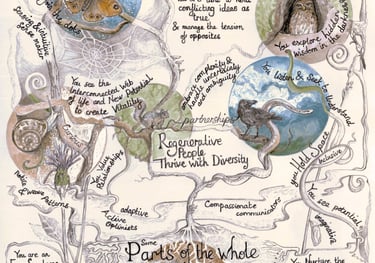 conflicting ideas as
true
& manage the tension
of opposites
Join the dots
sensing & intuitive
You explore hidden
wisdom in the darkness
You see the
interconnected web
of life and New Potential
to create Vitality
embrace complexity &
handle uncertainty
and ambiguity
You listen & seek to understand
partnerships
Creative
Regenerative
People
Thrive with Diversity
You Value
Relationships
You Hold Space
inclusive
notice
& weave
Patterns
adaptive
Active
Optimists
Compassionate
communicators
You see potential
imaginative
Some
Parts of the Whole
You are an
You Nurture the